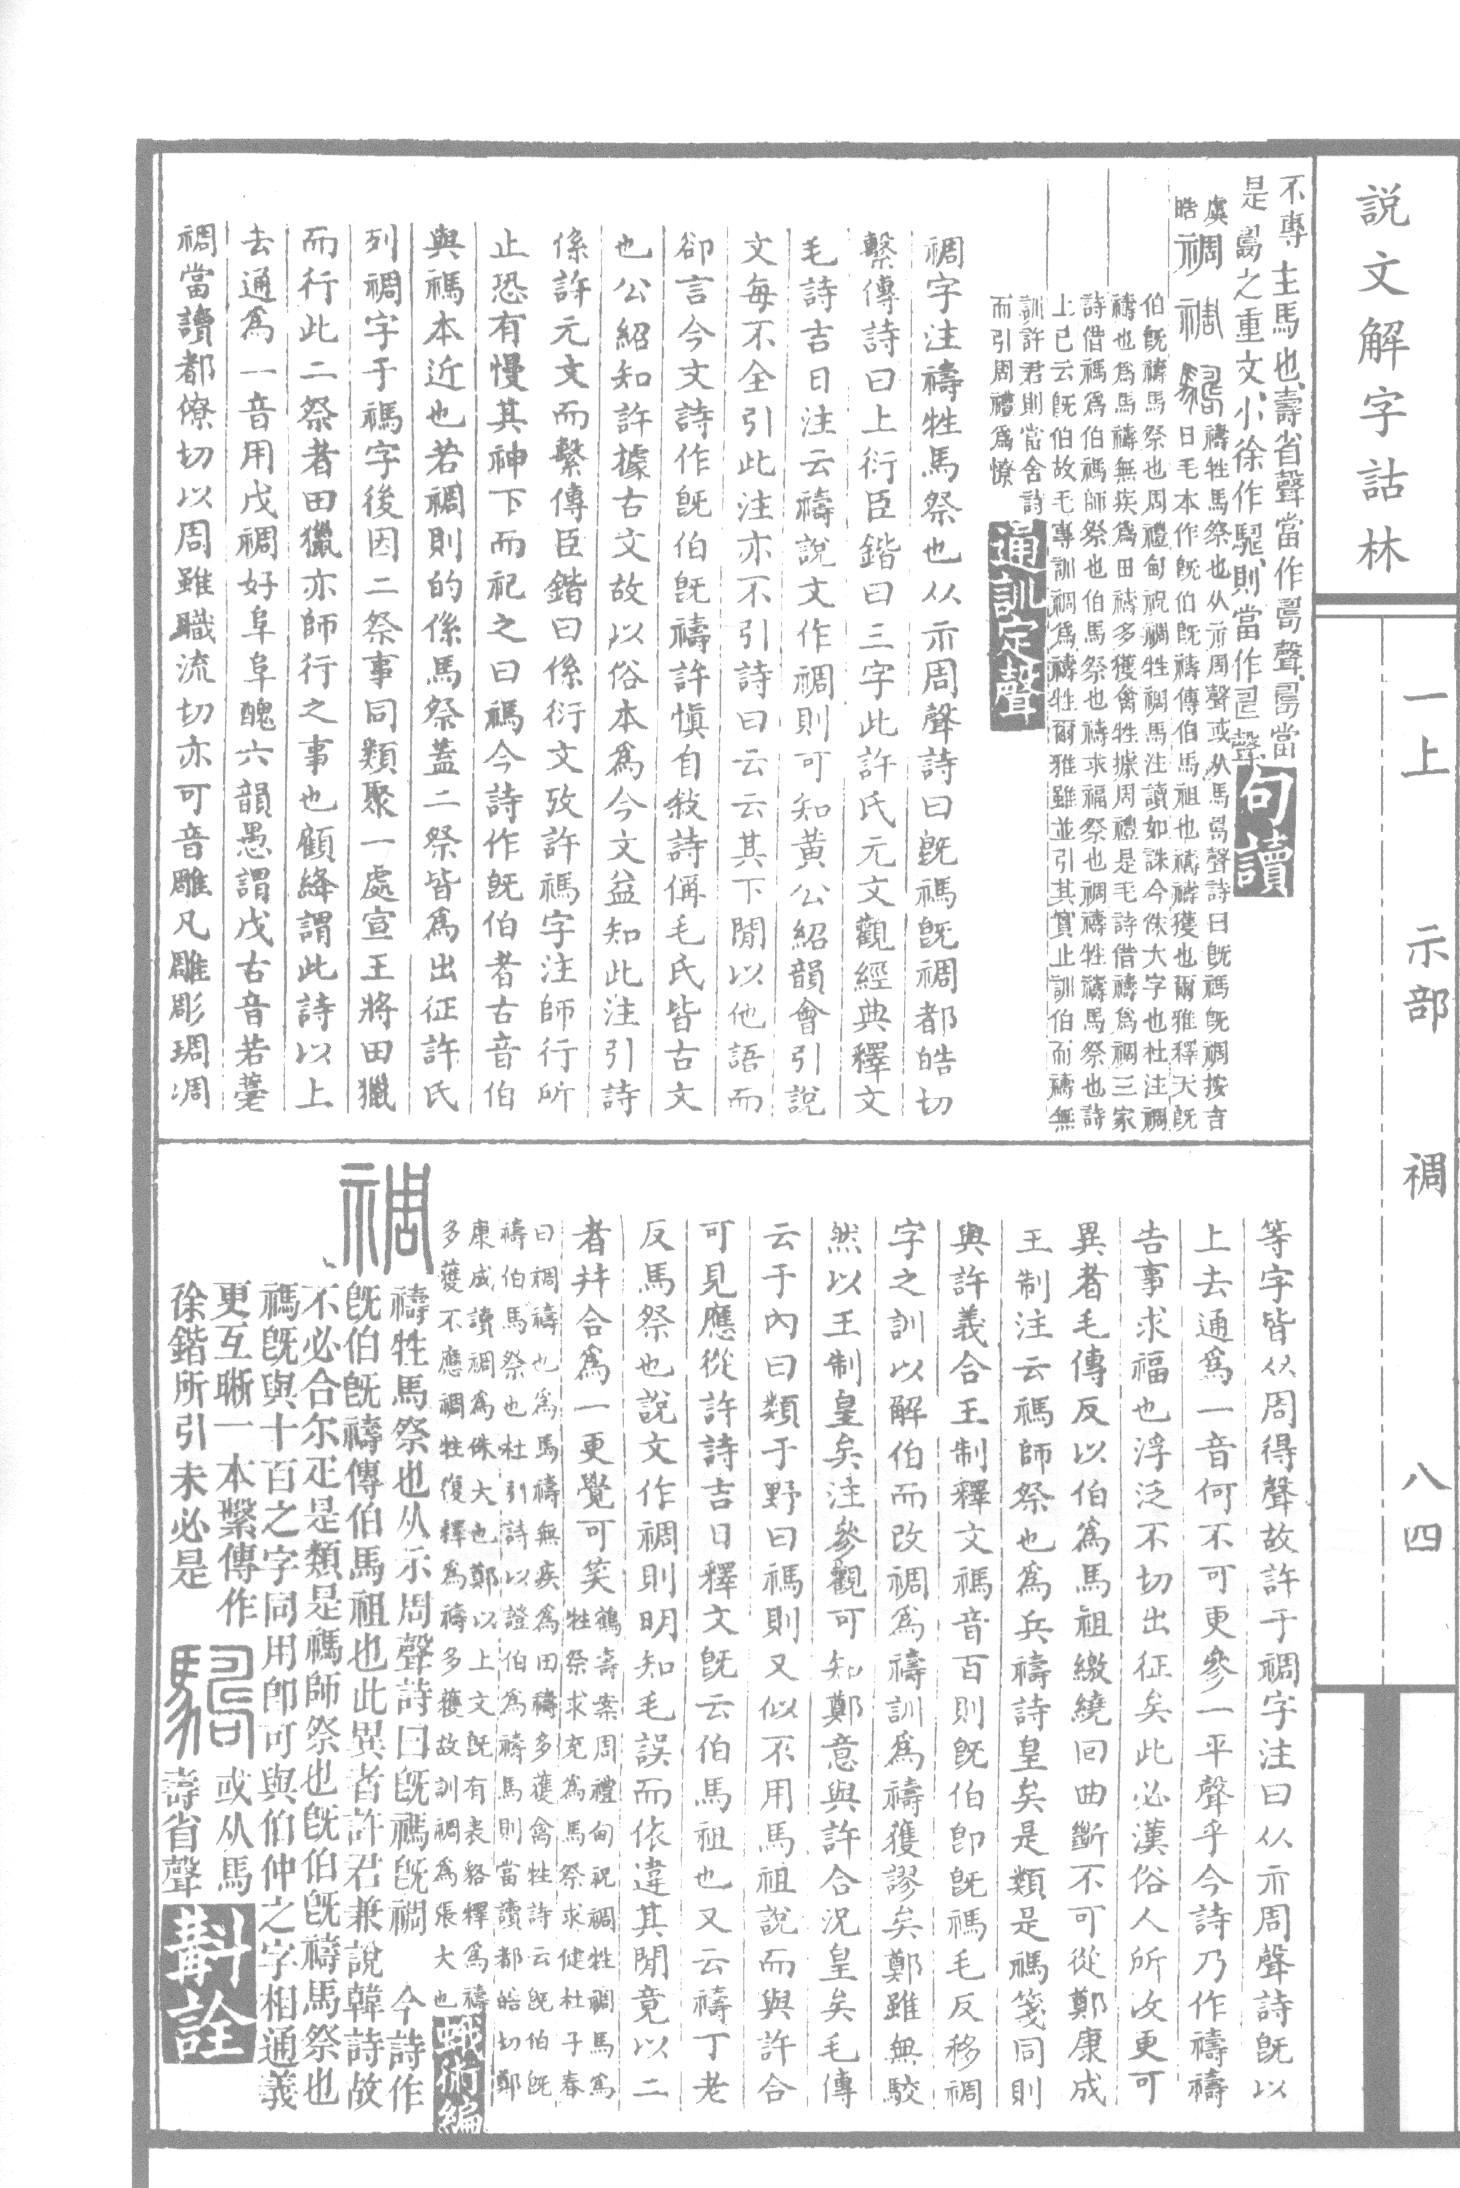 說文解字詁林
一上　示部　禂　八四
不專主馬也壽省聲當作𠷎聲𠷎當
是𠷎之重文小徐作騆則當作𠃬聲
句讀
虞晧
禂
禱牲馬祭也从示周聲或从馬𠷎聲詩曰旣禡旣禂按吉
日毛本作旣伯旣禱傳伯馬祖也禱禱獲也爾雅釋天旣
伯旣禱馬祭也周禮甸祝禂牲禂馬注讀如誅今侏大字也杜注禂
禱也爲馬禱無疾爲田禱多獲禽牲據周禮是毛詩借禱爲禂三家
詩借禡爲伯禡師祭也伯馬祭也禱求福祭也禂禱牲禱馬祭也詩
上已云旣伯故毛專訓禂爲禱牲爾雅雖並引其實止訓伯而禱無
訓許君則當舍詩
而引周禮爲憭
通訓定聲
禂字注禱牲馬祭也从示周聲詩曰旣禡旣禂都皓切
繫傳詩曰上衍臣鍇曰三字此許氏元文觀經典釋文
毛詩吉日注云禱說文作禂則可知黃公紹韻會引說
文每不全引此注亦不引詩曰云云其下閒以他語而
卻言今文詩作旣伯旣禱許愼自敍詩偁毛氏皆古文
也公紹知許據古文故以俗本爲今文益知此注引詩
係許元文而繫傳臣鍇曰係衍文攷許禡字注師行所
止恐有慢其神下而祀之曰禡今詩作旣伯者古音伯
與禡本近也若禂則的係馬祭蓋二祭皆爲出征許氏
列禂字于禡字後因二祭事同類聚一處宣王將田獵
而行此二祭者田獵亦師行之事也顧絳謂此詩以上
去通爲一音用戊禂好阜阜醜六韻愚謂戊古音若菶
禂當讀都僚切以周雖職流切亦可音雕凡雕彫琱凋
等字皆从周得聲故許于禂字注曰从示周聲詩旣以
上去通爲一音何不可更參一平聲乎今詩乃作禱禱
告事求福也浮泛不切出征矣此必漢俗人所改更可
異者毛傳反以伯爲馬祖繳繞回曲斷不可從鄭康成
王制注云禡師祭也爲兵禱詩皇矣是類是禡箋同則
與許義合王制釋文禡音百則旣伯卽旣禡毛反移禂
字之訓以解伯而改禂爲禱訓爲禱獲謬矣鄭雖無駮
然以王制皇矣注參觀可知鄭意與許合況皇矣毛傳
云于內曰類于野曰禡則又似不用馬祖說而與許合
可見應從許詩吉日釋文旣云伯馬祖也又云禱丁老
反馬祭也說文作禂則明知毛誤而依違其閒竟以二
者幷合爲一更覺可笑
鶴壽案周禮甸祝禂牲禂馬爲
牲祭求充爲馬祭求健杜子春
曰禂禱也爲馬禱無疾爲田禱多獲禽牲詩云旣伯旣
禱伯馬祭也杜引詩以證伯爲禱馬則當讀都皓切鄭
康成讀禂爲侏大也鄭以上文旣有表貉釋爲禱
多獲不應禂牲復釋爲禱多獲故訓禂爲張大也
蛾術編
禂
禱牲馬祭也从示周聲詩曰旣禡旣禂　今詩作
旣伯旣禱傳伯馬祖也此異者許君兼說韓詩故
不必合尔疋是類是禡師祭也旣伯旣禱馬祭也
禡旣與十百之字同用卽可與伯仲之字相通義
更互晰一本繫傳作
徐鍇所引未必是
或从馬
壽省聲
斠詮